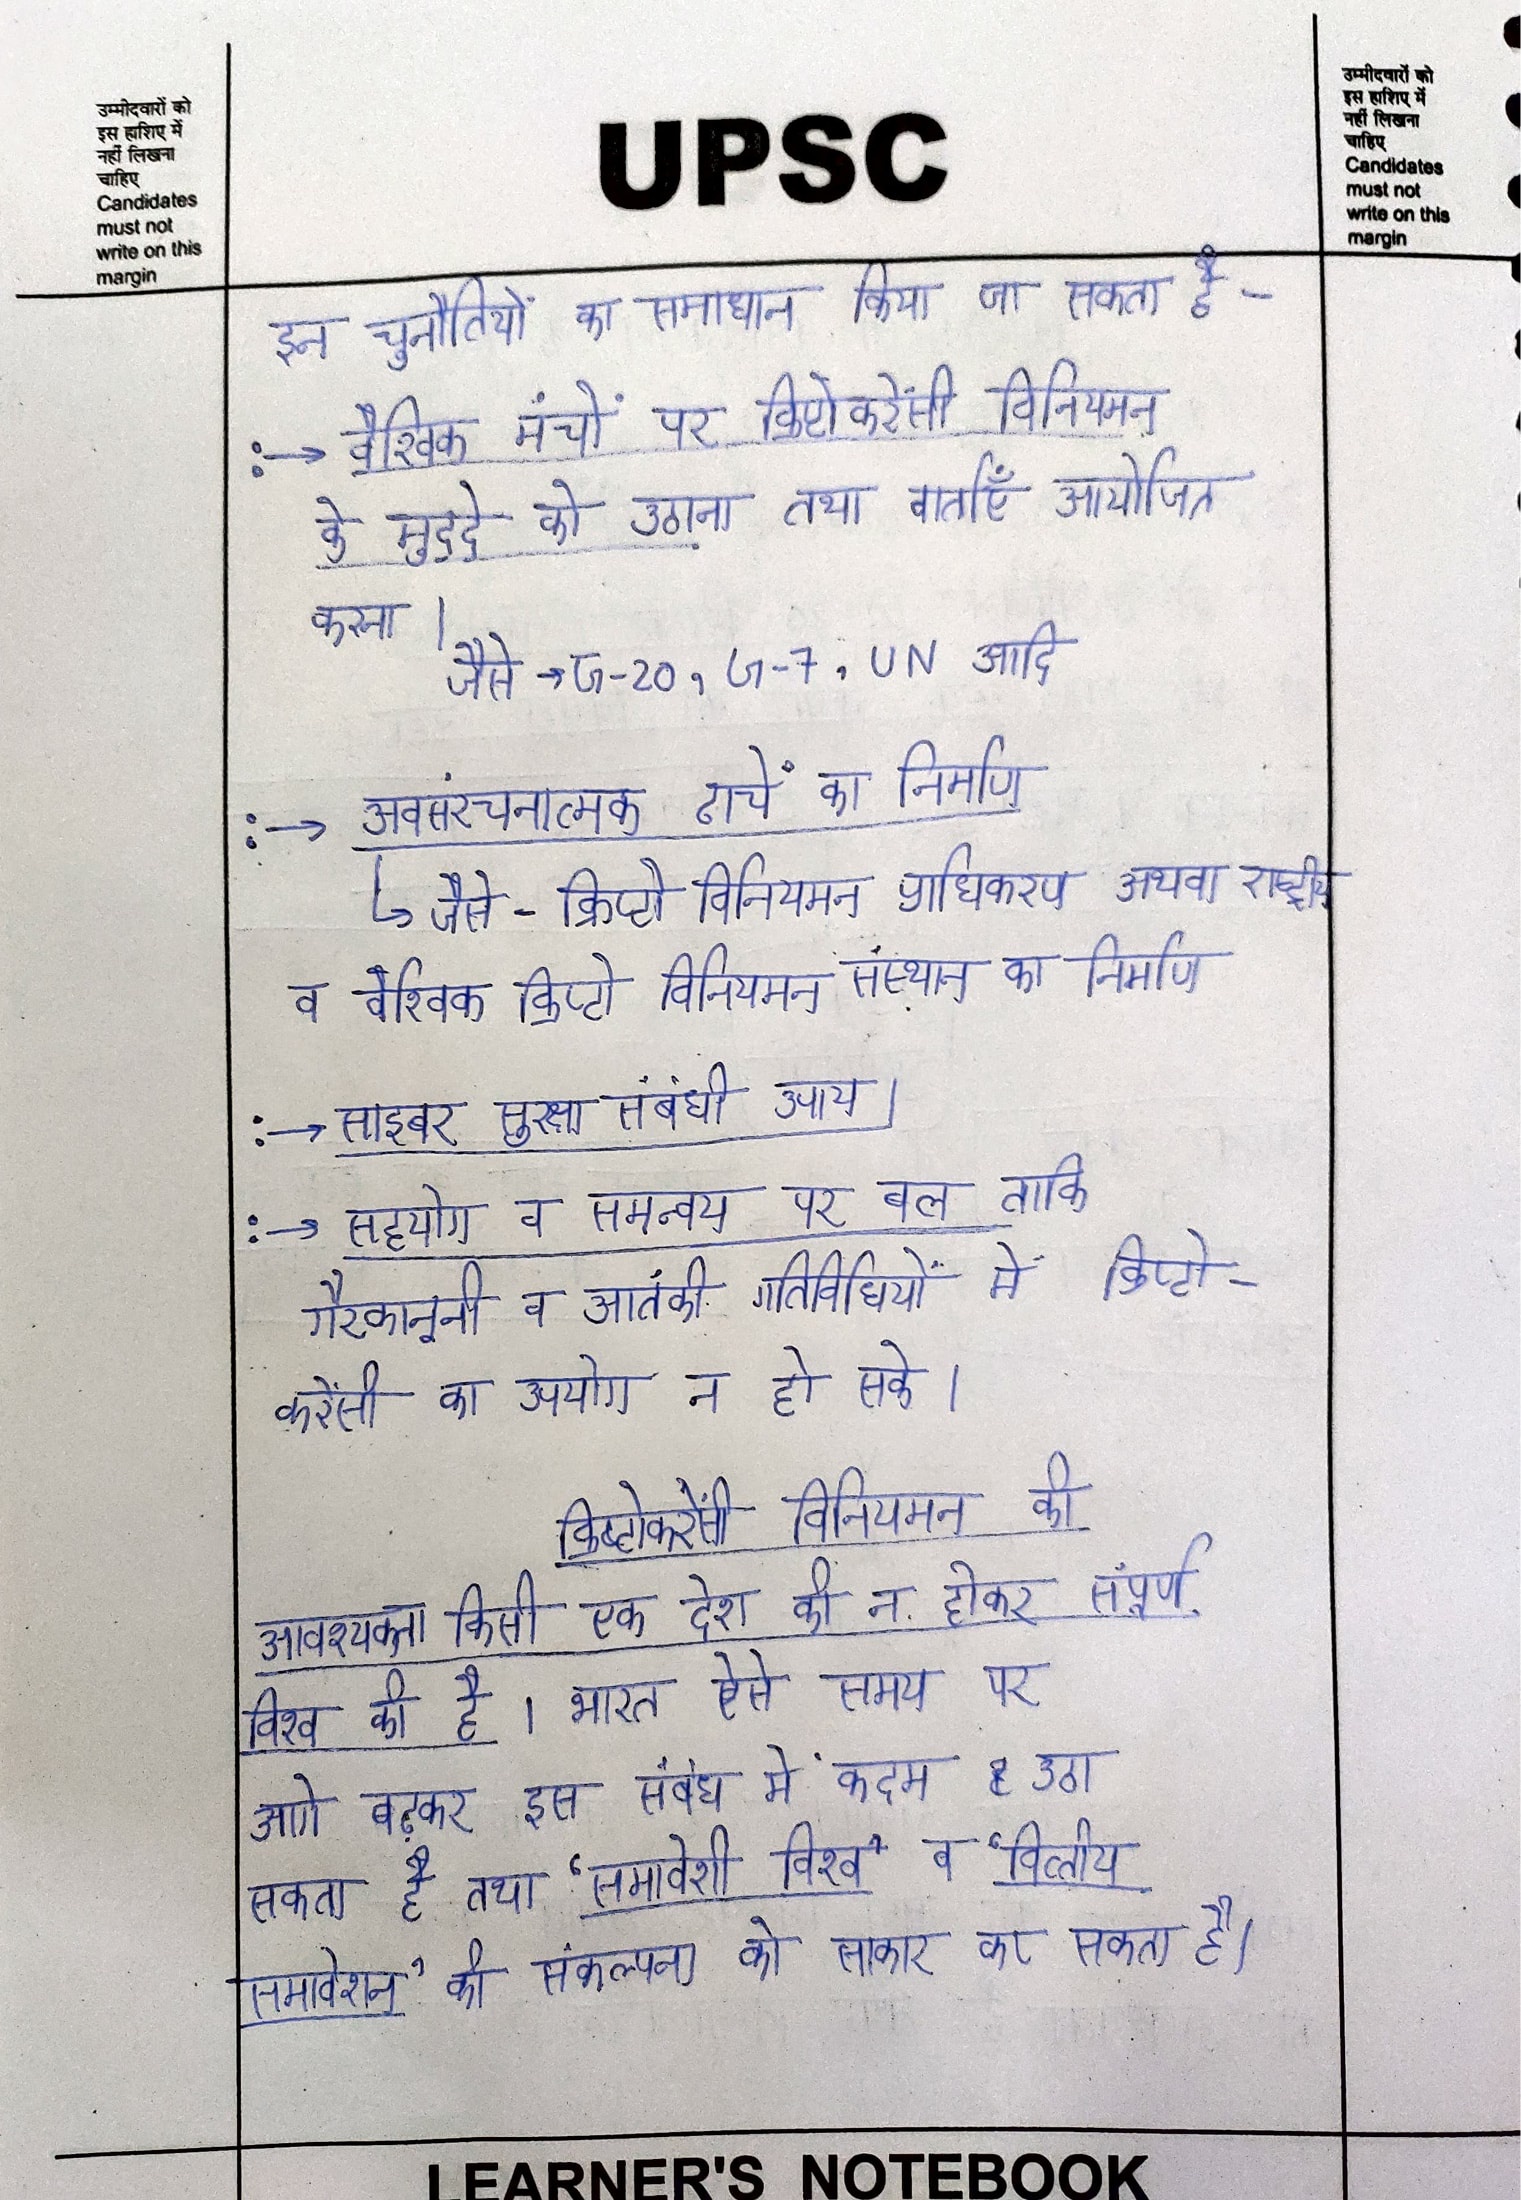 उम्मीदवारों को
इस हाशिए में
नहीं लिखना
चाहिए
Candidates
must not
write on this
margin
UPSC
उम्मीदवारों को
इस हाशिए में
नहीं लिखना
चाहिए
Candidates
must not
write on this
margin
इन चुनौतियों का समाधान किया जा सकता है -
:→ वैश्विक मंचों पर क्रिप्टोकरेंसी विनियमन
के मुद्दे को उठाना तथा वार्ताएँ आयोजित
करना ।
जैसे → G-20, G-7, UN आदि
:→ अवसंरचनात्मक ढाचें का निर्माण
↳ जैसे - क्रिप्टो विनियमन प्राधिकरण अथवा राष्ट्रीय
व वैश्विक क्रिप्टो विनियमन संस्थान का निर्माण
:→ साइबर सुरक्षा संबंधी उपाय ।
:→ सहयोग व समन्वय पर बल ताकि
गैरकानूनी व आतंकी गतिविधियों में क्रिप्टो-
करेंसी का उपयोग न हो सके ।
क्रिप्टोकरेंसी विनियमन की
आवश्यक्ता किसी एक देश की न होकर संपूर्ण
विश्व की है । भारत ऐसे समय पर
आगे बढ़कर इस संबंध में कदम उठा
सकता है तथा ‘समावेशी विश्व’ व ‘वित्तीय
समावेशन’ की संकल्पना को साकार कर सकता है।
LEARNER'S NOTEBOOK